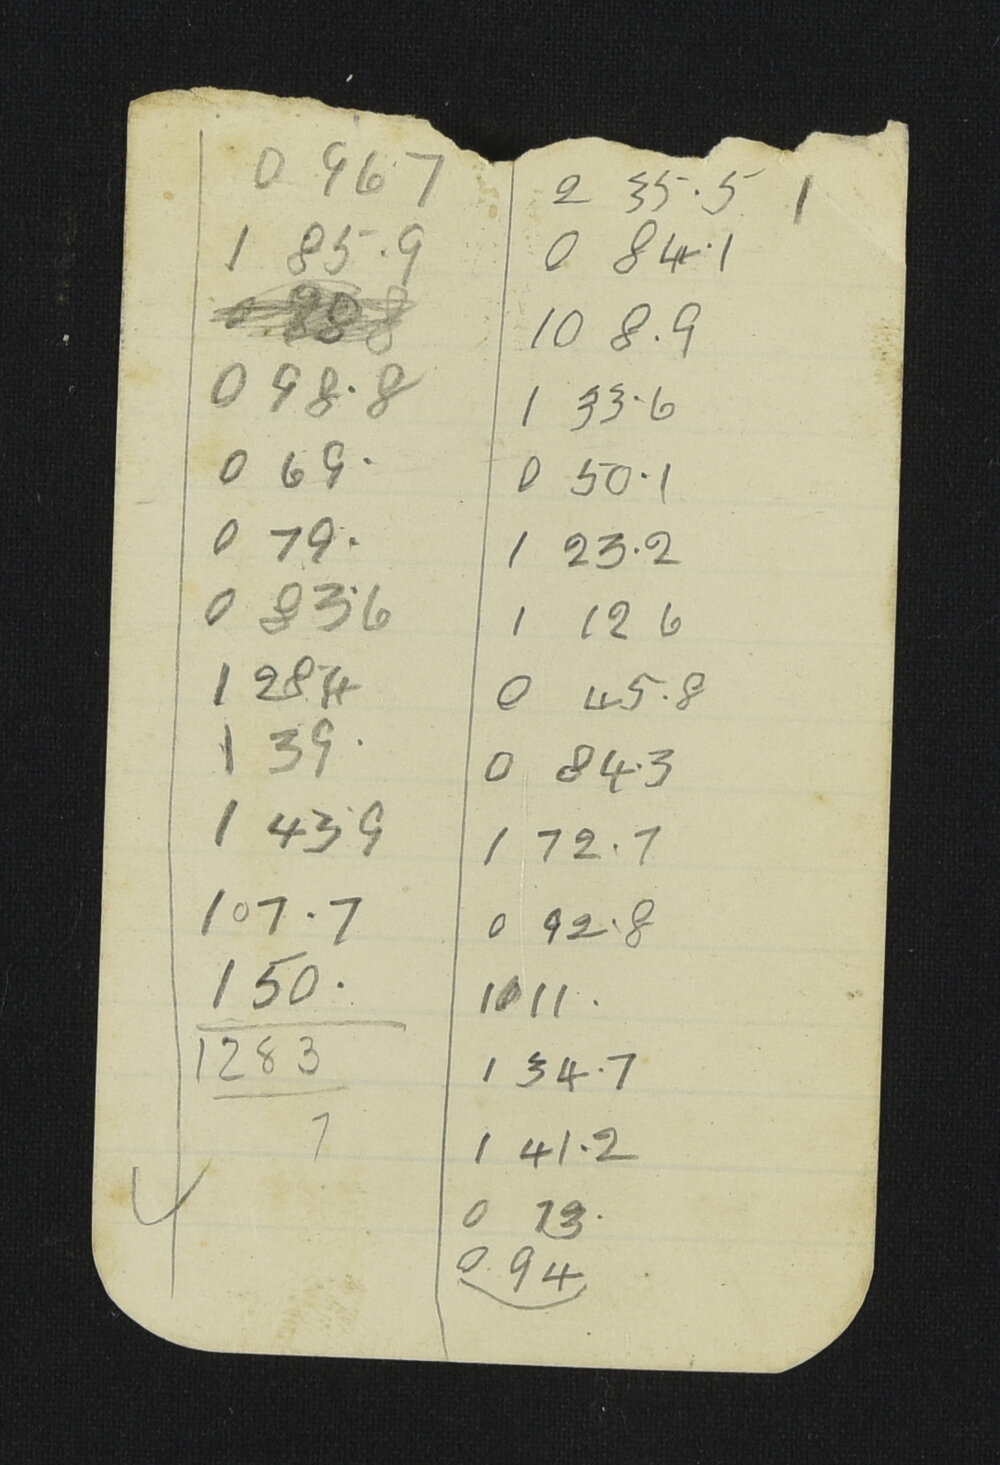 0 96·7
1 85·9
0 98·8
0 69·
0 79·
0 83·6
1 28·4
1 39·
1 43·9
107·7
150·
1283
7
2 35·5 1
0 84·1
10 8·9
1 33·6
0 50·1
1 23·2
1 12 6
0 45·8
0 84·3
1 72·7
0 92·8
1 11·
1 34·7
1 41·2
0 73·
0 94